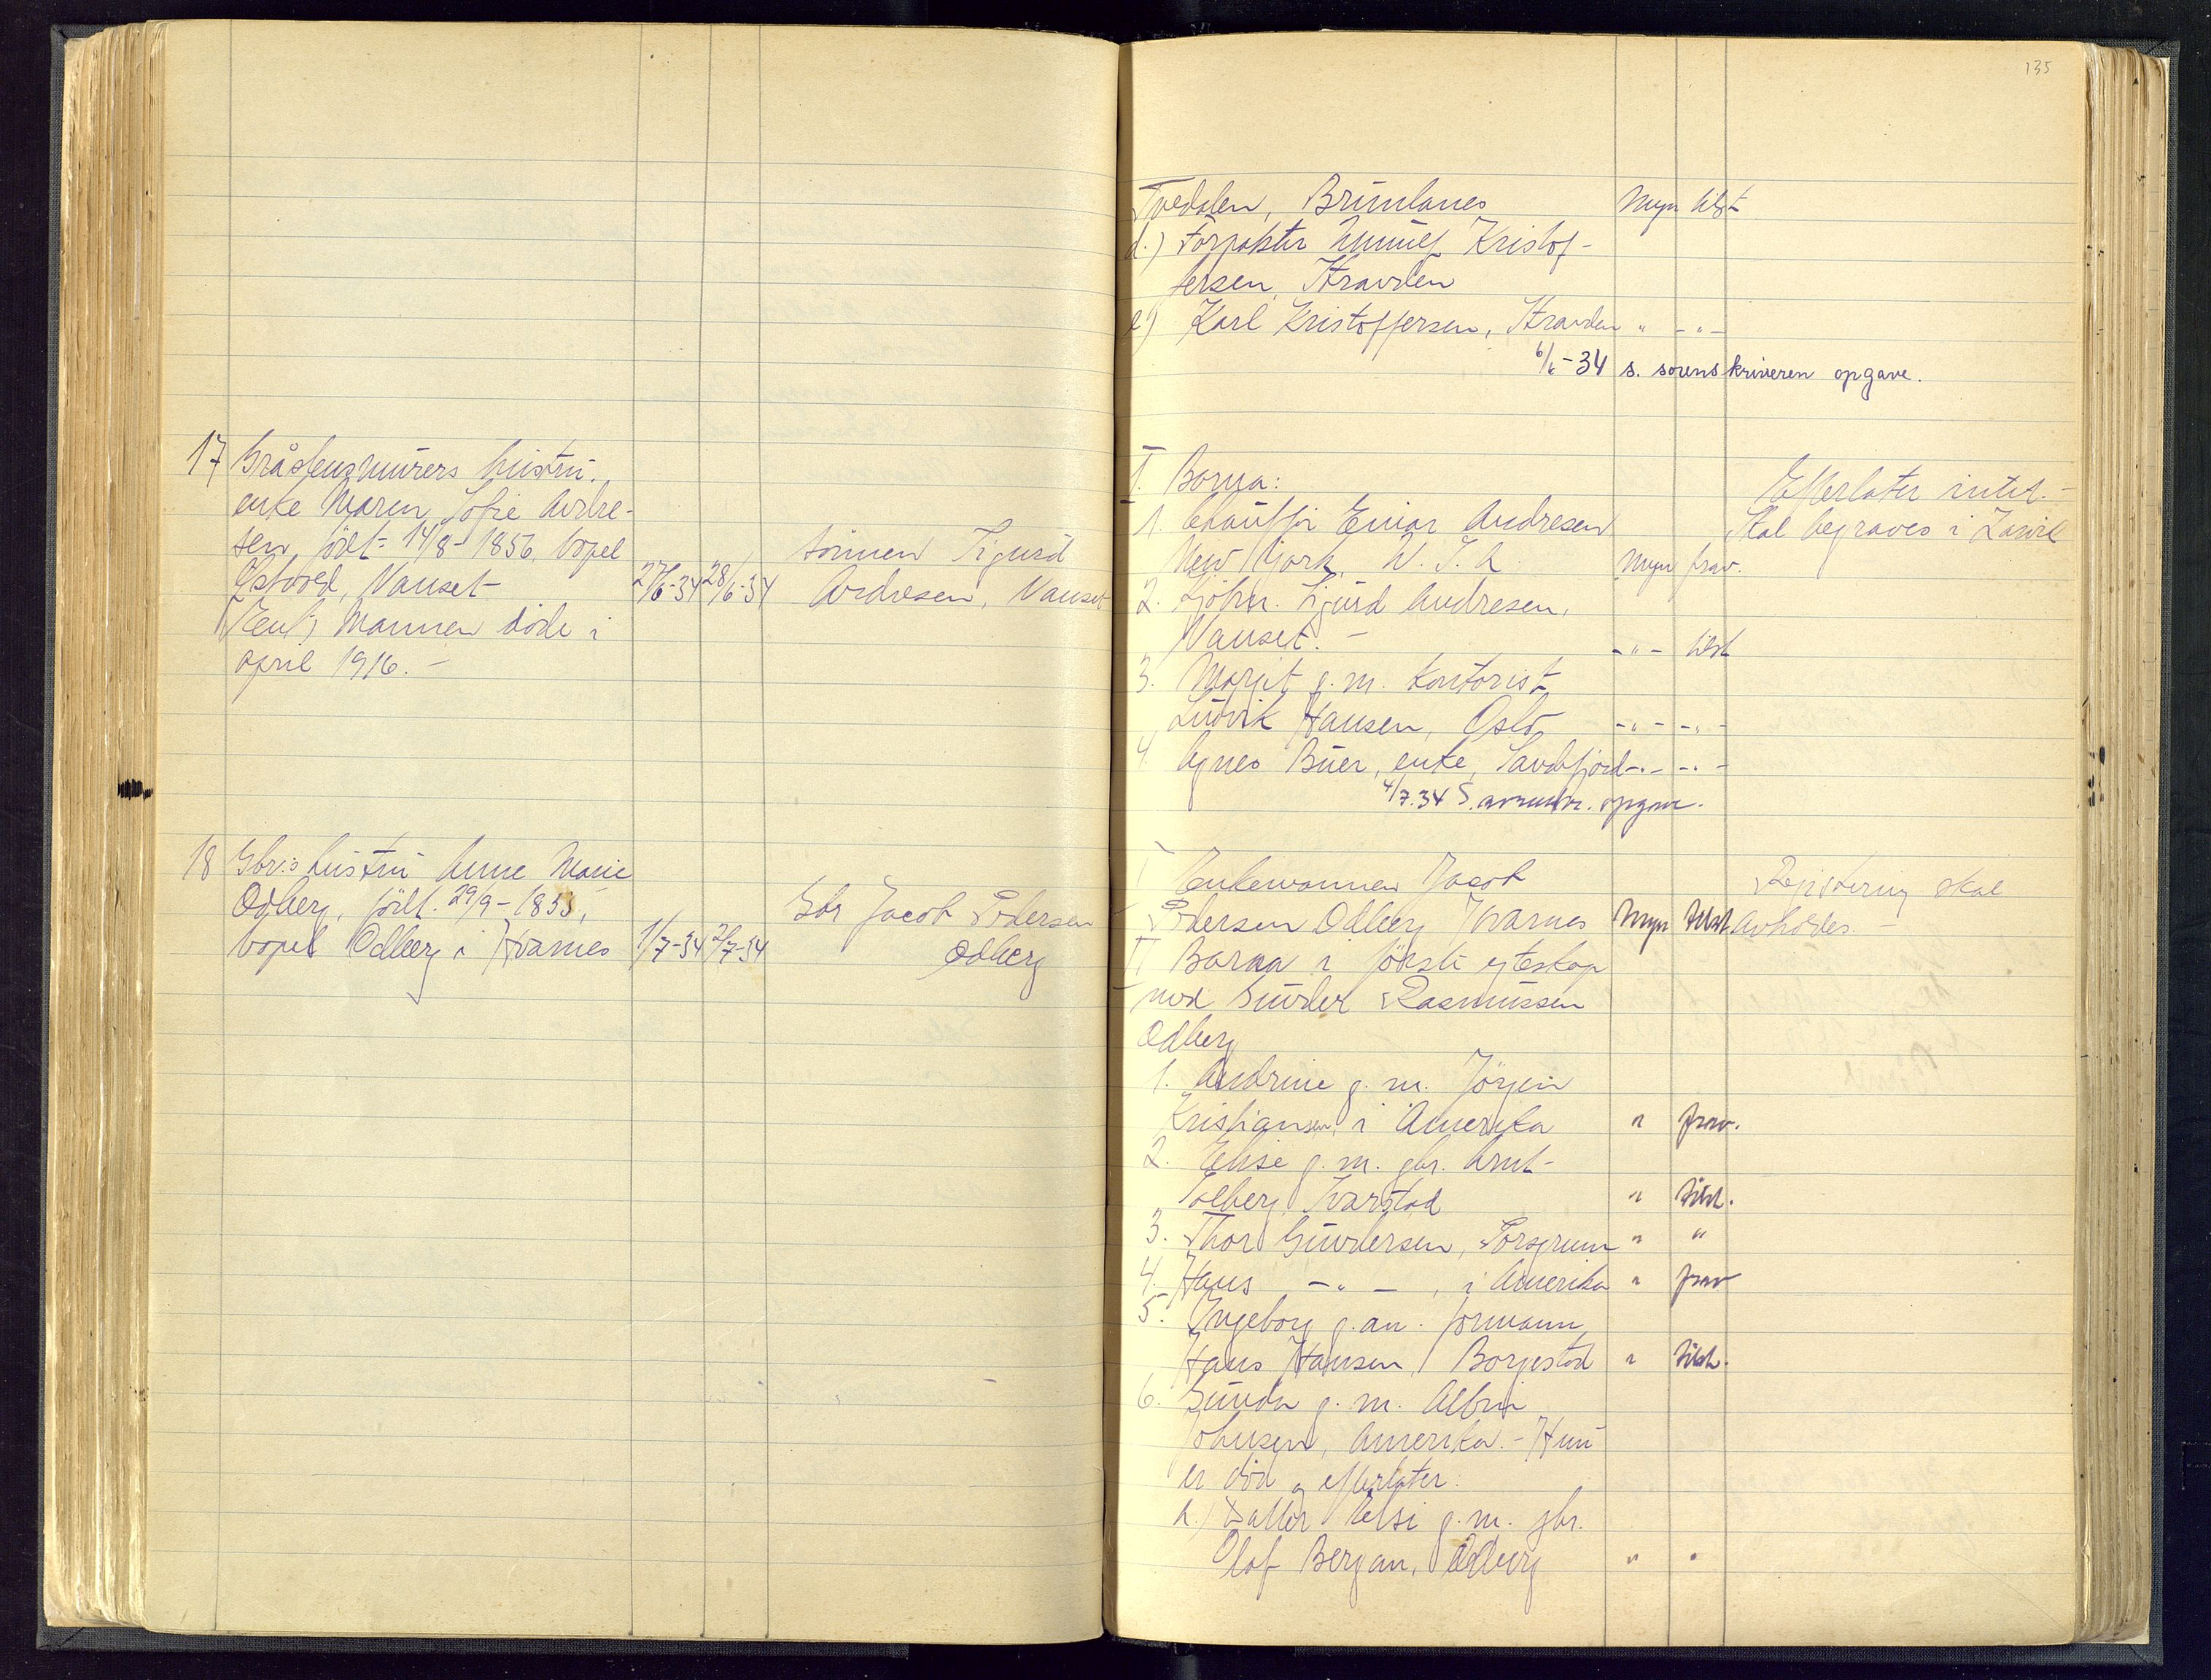 17 Gråstensmurers hustru,
enke Maren Sofie Andre-
sen, född 14/8-1856, bopel
Østvold, Nanset
Enke Mannen döde i
april 1916. -
27/6-34 28/6-34
Sønnen Sigurd
Andresen, Nanset
18 Gbr.s hustru Anne Marie
Odberg, född. 29/9-1855,
bopel Odberg i Hvarnes
1/7-34 2/7-34
Gbr Jacob Pedersen
Odberg
135
Tvedalen, Brunlanes Myn tilst
d.) Forpakter Kristof-
fersen,
e) Karl Kristoffersen, " - " -
6/6-34 s. sorenskriveren opgave.
I. Barna:
1. Chauffør Einar Andresen
New York, U. S. A. Myn frav.
2. Sjöfm. Sigurd Andresen,
Nanset. - - " - tilst
3. Margit g. m. kontorist
Ludvik Hansen, Oslo - " - - " -
4. Agnes Buer, enke, Sandefjord - " - - " -
4/7.34 S. sorenskr. opgave.
Efterlater intet. -
Skal begraves i Larvik
I Enkemannen Jacob
Pedersen Odberg Hvarnes Myn tilst
Registrering skal
avholdes. -
II Barna i förste egteskap
med Gunder Rasmussen
Odberg
1. Andrine g. m. Jörgen
Kristiansen, i Amerika " frav.
2. Elise g. m. gbr. Anut
Solberg, Kvarstad " tilst.
3. Thor Gundersen, Porsgrunn " "
4. Hans - " - , i Amerika " frav
5. Ingeborg g. m. formann
Hans Hansen, Borgestad " tilst.
6. Gunda g. m. Albin
Johnsen, Amerika. - Hun
er död og efterlater.
a.) Datter Elsi g. m. gbr.
Olaf Bergan, Odberg " "